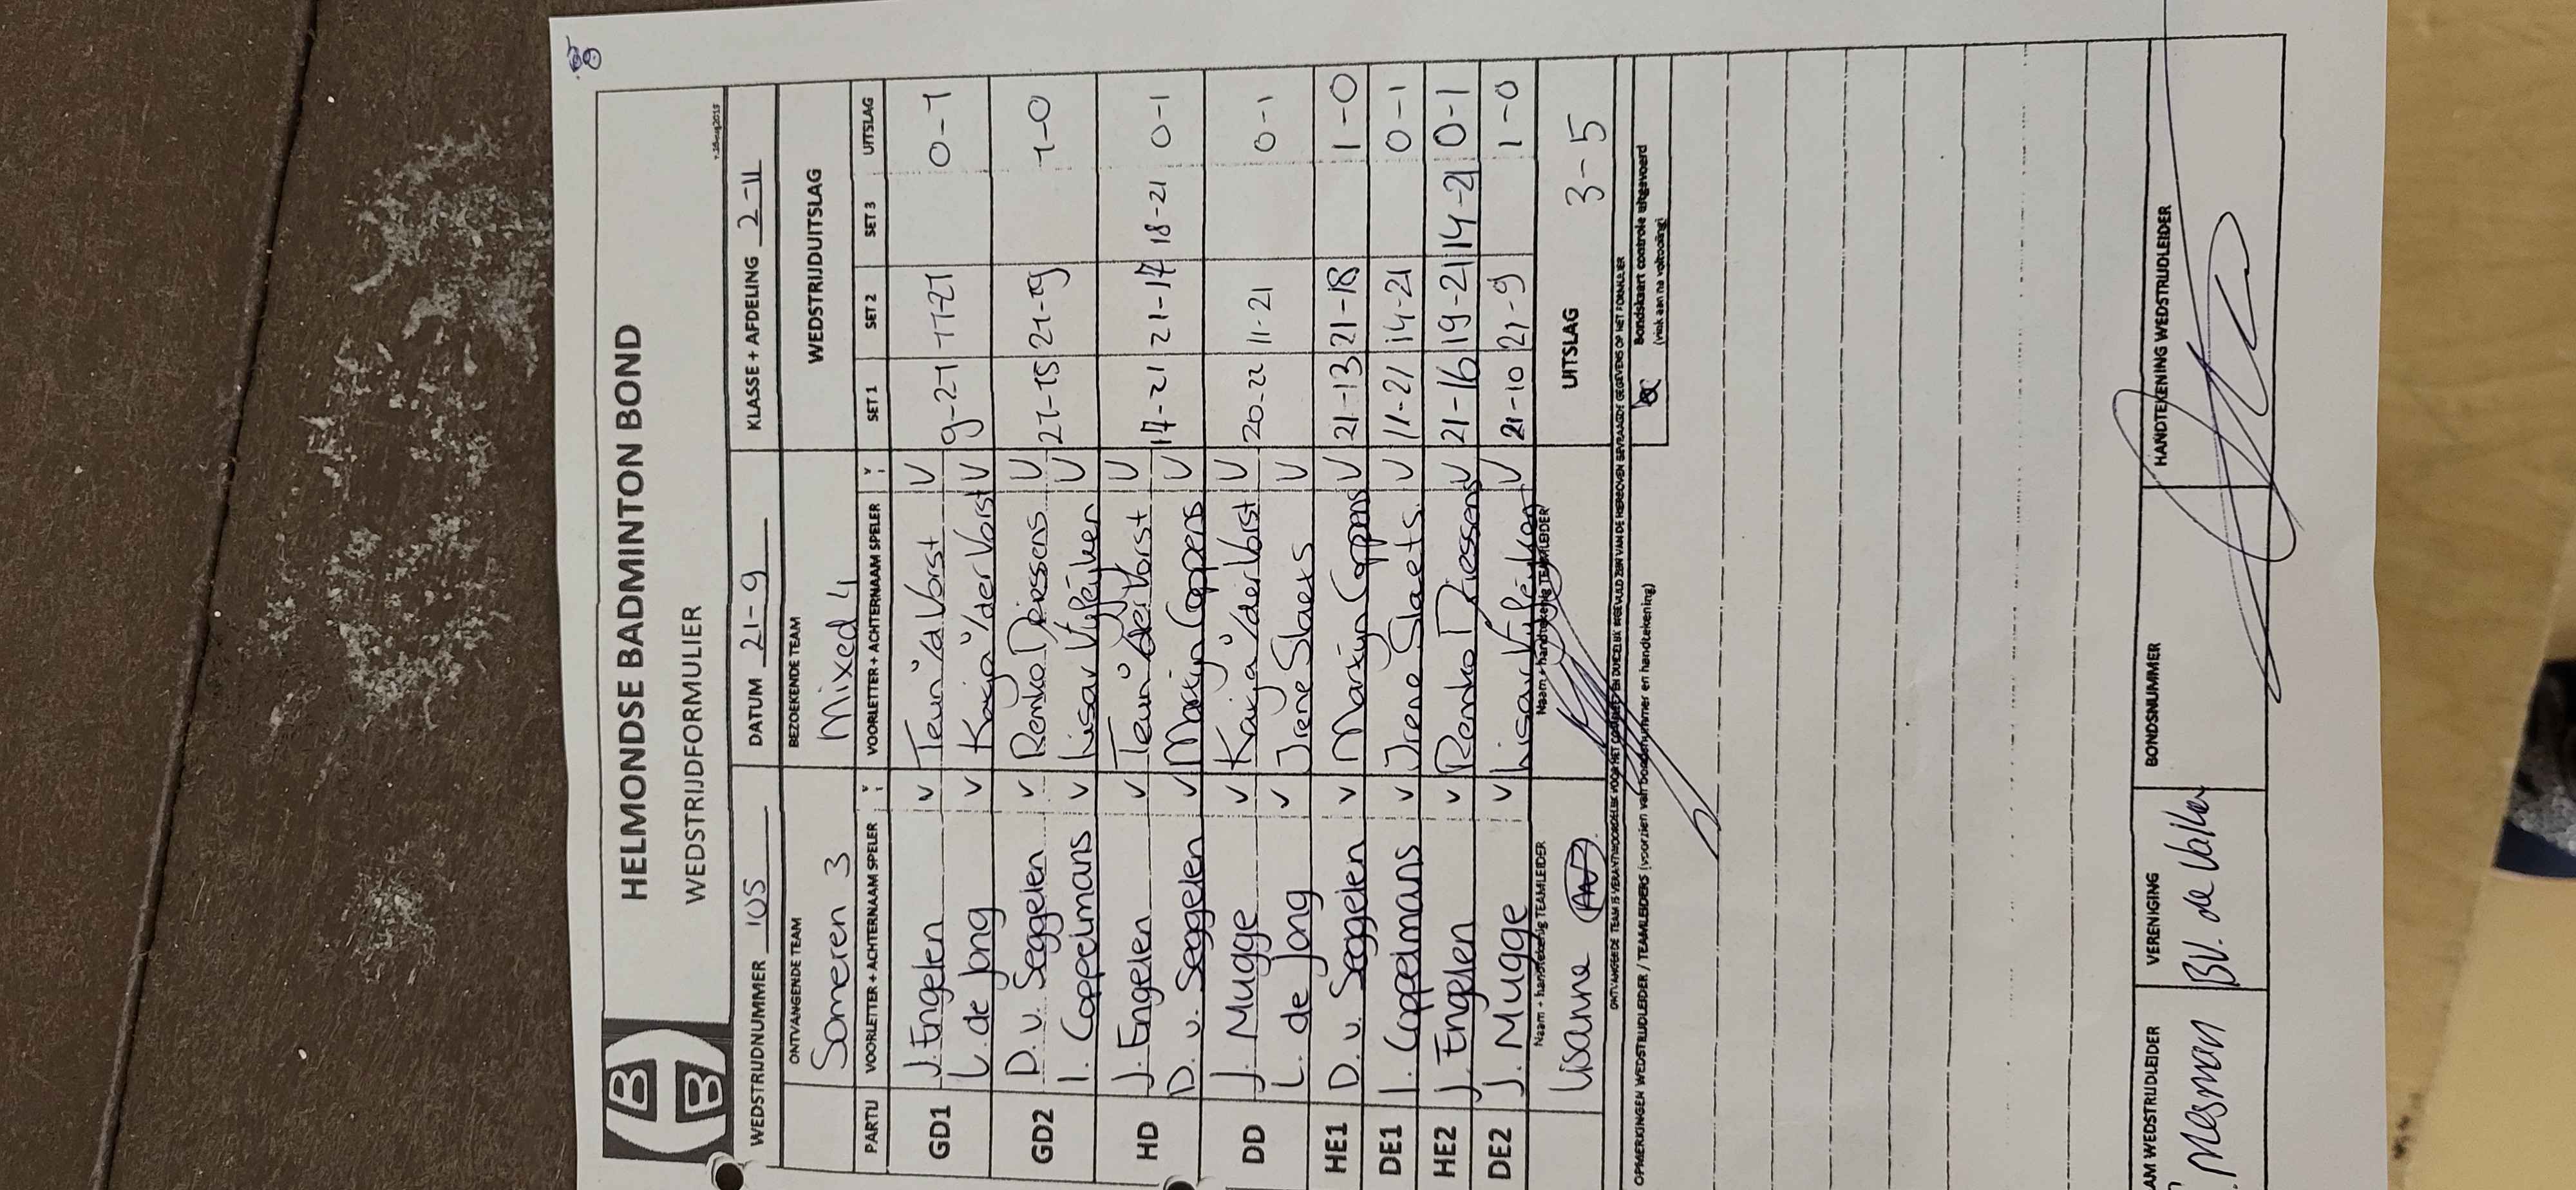 HELMONDSE BADMINTON BOND
WEDSTRIJDFORMULIER
WEDSTRIJDNUMMER 105 DATUM 21-9 KLASSE + AFDELING 2-11
ONTVANGENDE TEAM BEZOEKENDE TEAM WEDSTRIJDUITSLAG
Someren 3 Mixed 4
PARTIJ VOORLETTER + ACHTERNAAM SPELER VOORLETTER + ACHTERNAAM SPELER SET 1 SET 2 SET 3 UITSLAG
GD1 J. Engelen v Teun v/d Vorst V 9-21 11-21 0-1
L. de Jong v Karja v/der Vorst V
GD2 D. v. Seggelen v Remko Driessens V 21-15 21-19 1-0
I. Coppelmans v Lisa Vijfeijken V
HD J. Engelen v Teun v/der Vorst V 17-21 21-17 18-21 0-1
D. v. Seggelen v Martijn Coppens V
DD J. Mugge v Karja v/der Vorst V 20-22 11-21 0-1
L. de Jong v Irene Slaets V
HE1 D. v. Seggelen v Martijn Coppens V 21-13 21-18 1-0
DE1 I. Coppelmans v Irene Slaets V 11-21 14-21 0-1
HE2 J. Engelen v Remko Driessens V 21-16 19-21 14-21 0-1
DE2 J. Mugge v Lisa Vijfeijken V 21-10 21-9 1-0
Naam + handtekenig TEAMLEIDER Naam + handtekenig TEAMLEIDER
Lisanne UITSLAG 3-5
ONTVANGENDE TEAM IS VERANTWOORDELIJK VOOR HET COMPLEET EN DUIDELIJK INGEVULD ZIJN VAN DE HIERBOVEN GEVRAAGDE GEGEVENS OP HET FORMULIER
OPMERKINGEN WEDSTRIJDLEIDER / TEAMLEIDERS (voorzien van bondsnummer en handtekening) Bondskaart controle uitgevoerd
(vink aan na voltooiing)
AM WEDSTRIJDLEIDER VERENIGING BONDSNUMMER HANDTEKENING WEDSTRIJDLEIDER
Mesman BV. de Valken